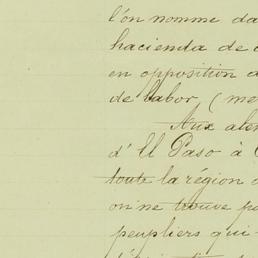 l'on nomme da
hacienda de
en opposition a
de labor (me
Aux alen
d'El Paso à
toute la région
on ne trouve pa
peupliers qui